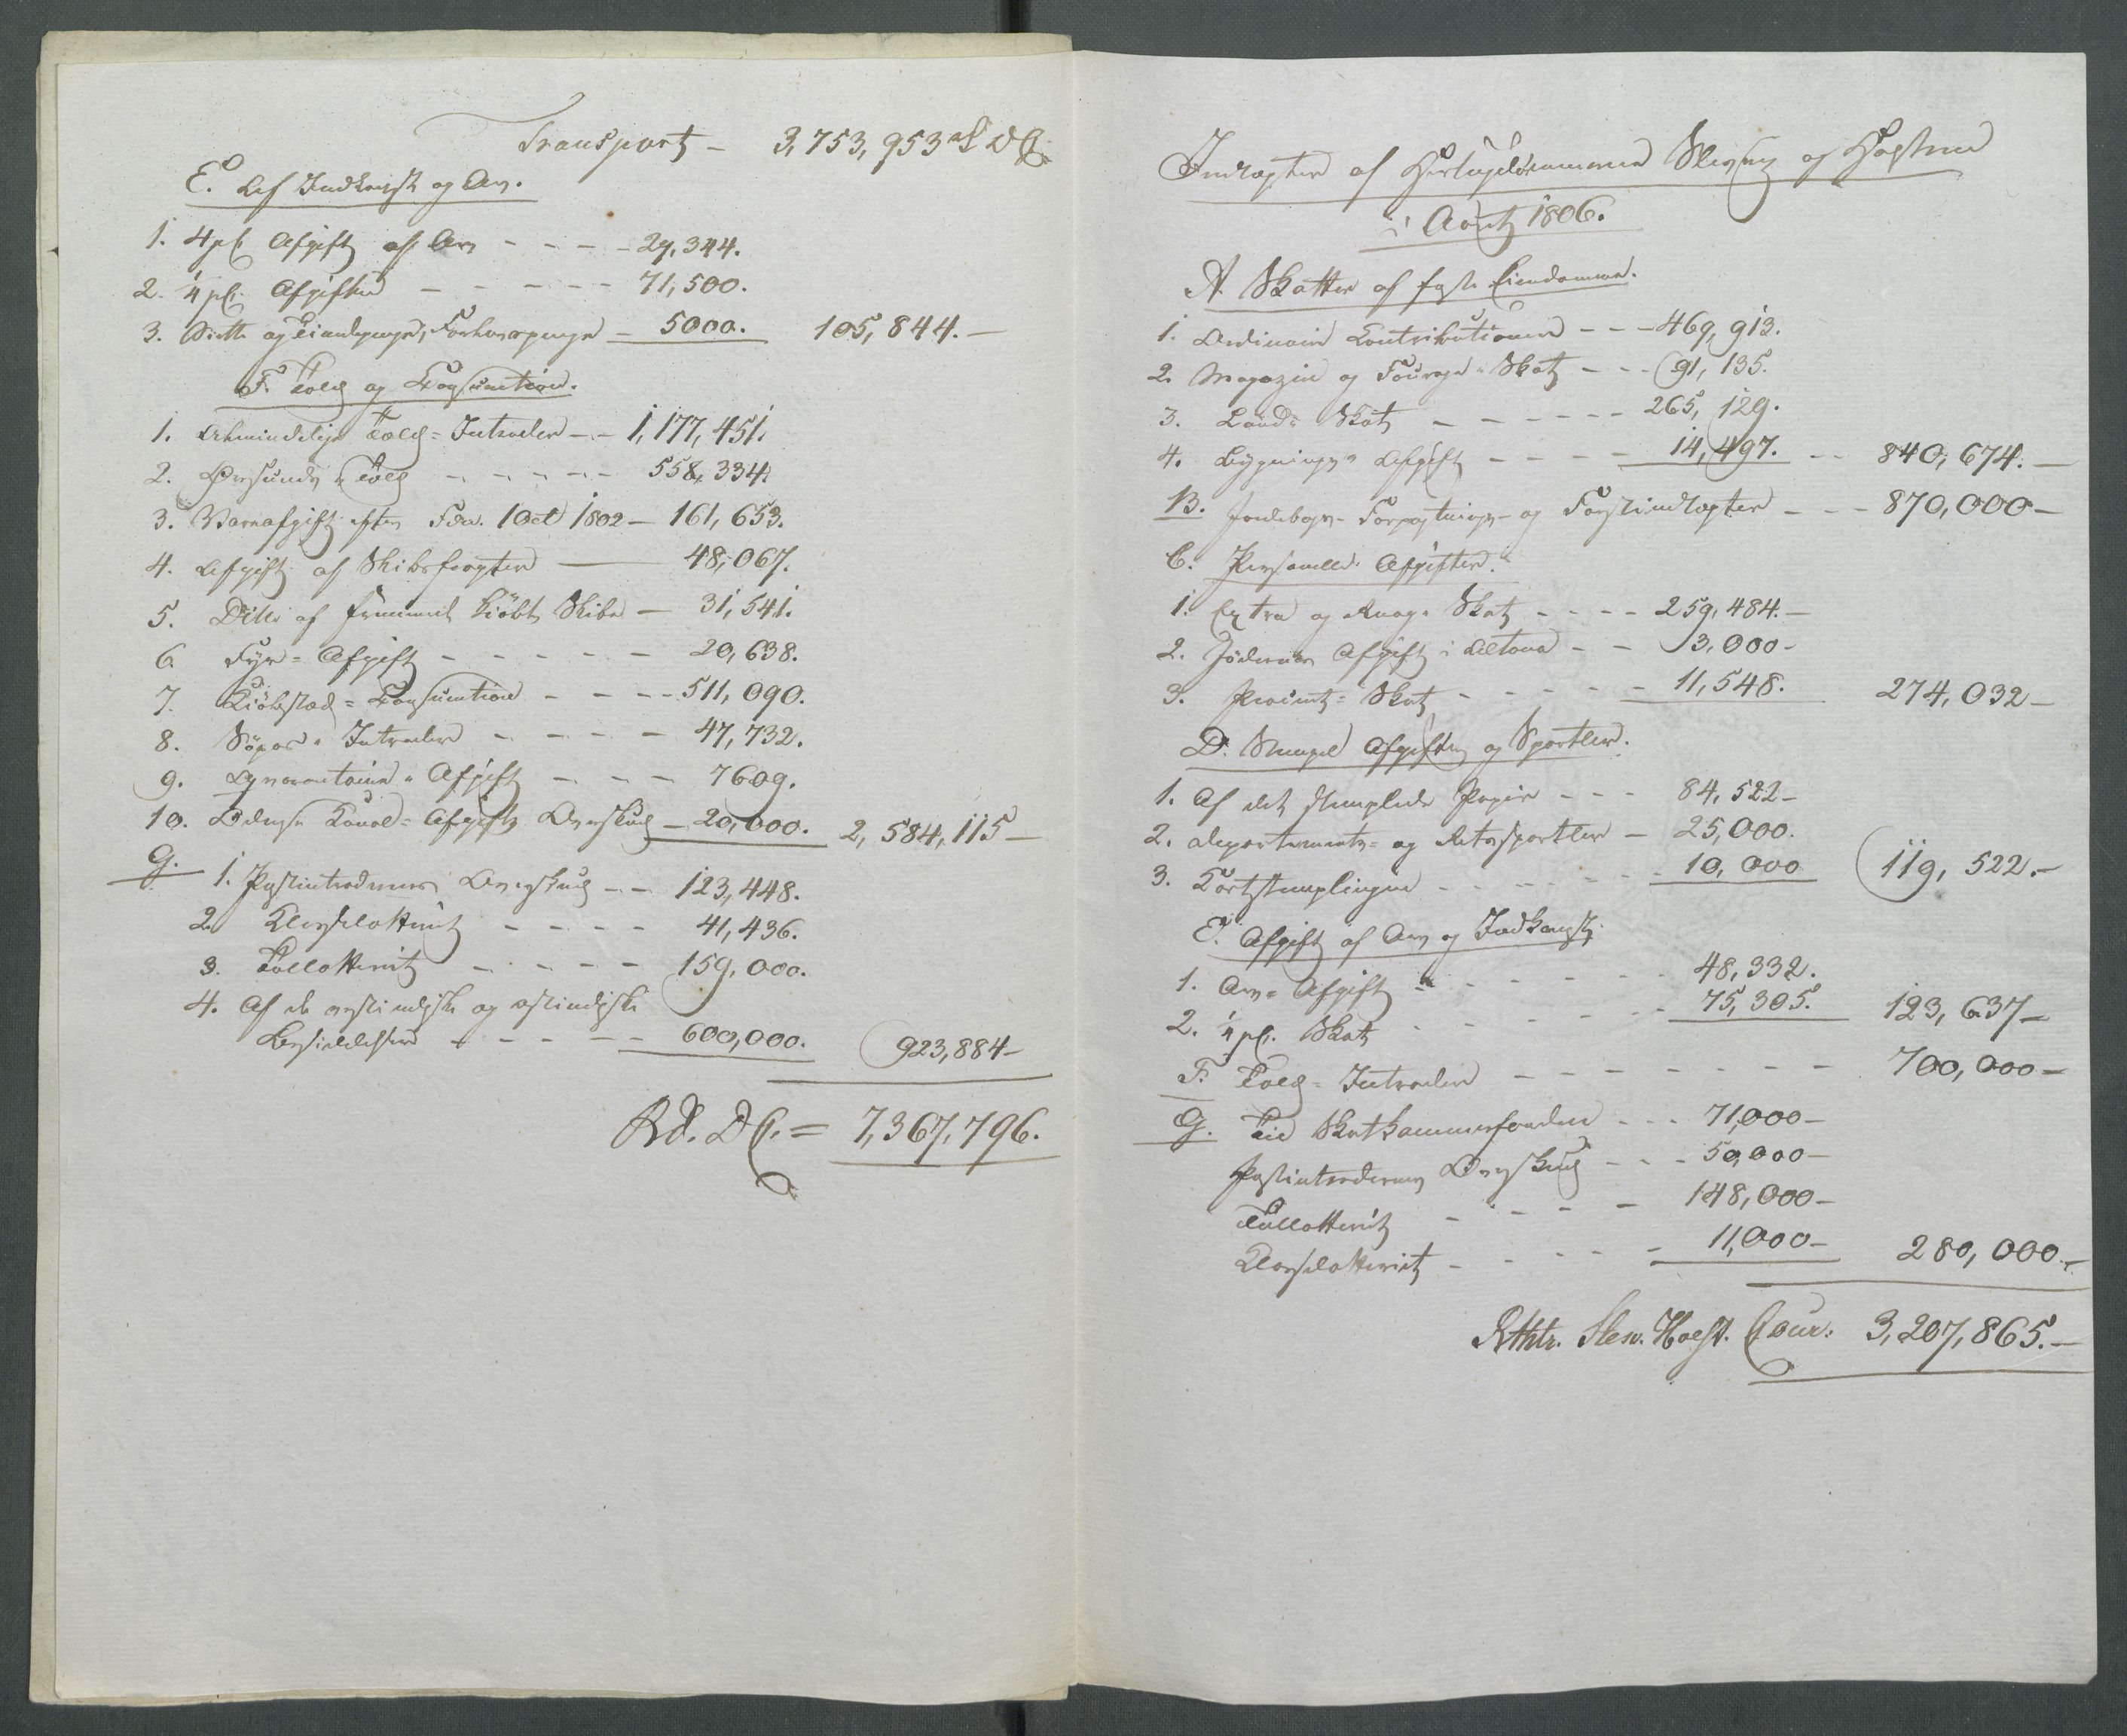 Transport – 3,753,953 rd D C.
E. Af Indkomst og Arv.
1. 4 pC. Afgift af Arv - - - - 29,344.
2. ¼ pC. Afgiften - - - - - 71,500.
3. Siette og Tiendepenge, Forlovspenge – 5000. 105,844. –
F. Told og Consumtion.
1. Almindelige Told = Intrader - - 1,177,451.
2. Øresunds Told - - - - - 558,334.
3. Vareafgift efter Fdn. 1 Oct 1802 – 161,653.
4. Afgift af Skibsfragter — 48,067.
5. Ditto af fremmed kiöbte Skibe – 31,541.
6. Fyr = Afgift - - - - - 20,638.
7. Kiöbstad = Consumtion - - - - 511,090.
8. Söpas = Intrader - - - - 47,732.
9. Qvarantaine = Afgift - - - 7609.
10. Odense Kanal = Afgifts Overskud – 20,000. 2,584,115 –
G. 1. Postintradernes Overskud - - 123,448.
2. Klasselotteriet - - - - 41,436.
3. Tallotteriet - - - - - 159,000.
4. Af de vestindiske og ostindiske
Besiddelser - - - - 600,000. 923,884 –
Rd. D C. = 7,367,796.
Indtægter af Hertugdömmene Slesvig og Holsteen
i Aaret 1806.
A. Skatter af faste Eiendomme.
1. Ordinaire Contributioner - - - 469,913.
2. Magazin og Fourage = Skat - - - 91,135.
3. Land = Skat - - - - - - 265,129.
4. Bygnings = Afgift - - - - 14,497. - - 840,674. –
B. Jordebogs- Forpagtnings- og Forstindtægter - - - 870,000 –
C. Personelle Afgifter.
1. Extra og Rang = Skat - - - - 259,484. –
2. Jödernes Afgift i Altona - - 3,000 –
3. Procent = Skat - - - - - 11,548. 274,032 –
D. Stempel Afgifter og Sportler.
1. Af det stemplede Papir - - - 84,522 –
2. Departements = og Retssportler – 25,000.
3. Kortstemplingen - - - - - - 10,000 119,522. –
E. Afgift af Arv og Indkomst.
1. Arv = Afgift - - - - - 48,332.
2. ¼ pC. Skat - - - - - - 75,305. 123,637 –
F. Told = Intrader - - - - - - - - 700,000 –
G. Til Skatkammerfonden - - - 71,000 –
Postintradernes Overskud - - - 50,000 –
Tallotteriet - - - - - 148,000 –
Klasselotteriet - - - - - 11,000 – 280,000. –
Rthlr. Slesv. Holst. Cour: 3,207,865. –